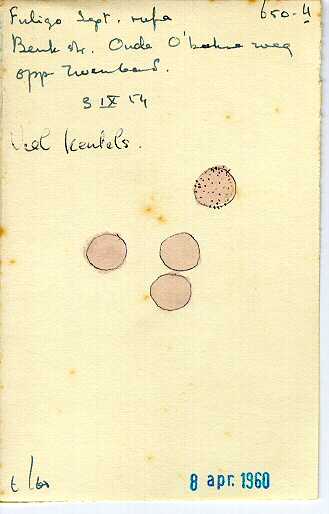 Fuligo sept. rufa 650-4
Benk str. Oude O'bekse weg
opp zwembad.
3 IX 54
Veel kentels.
t/b
8 apr. 1960